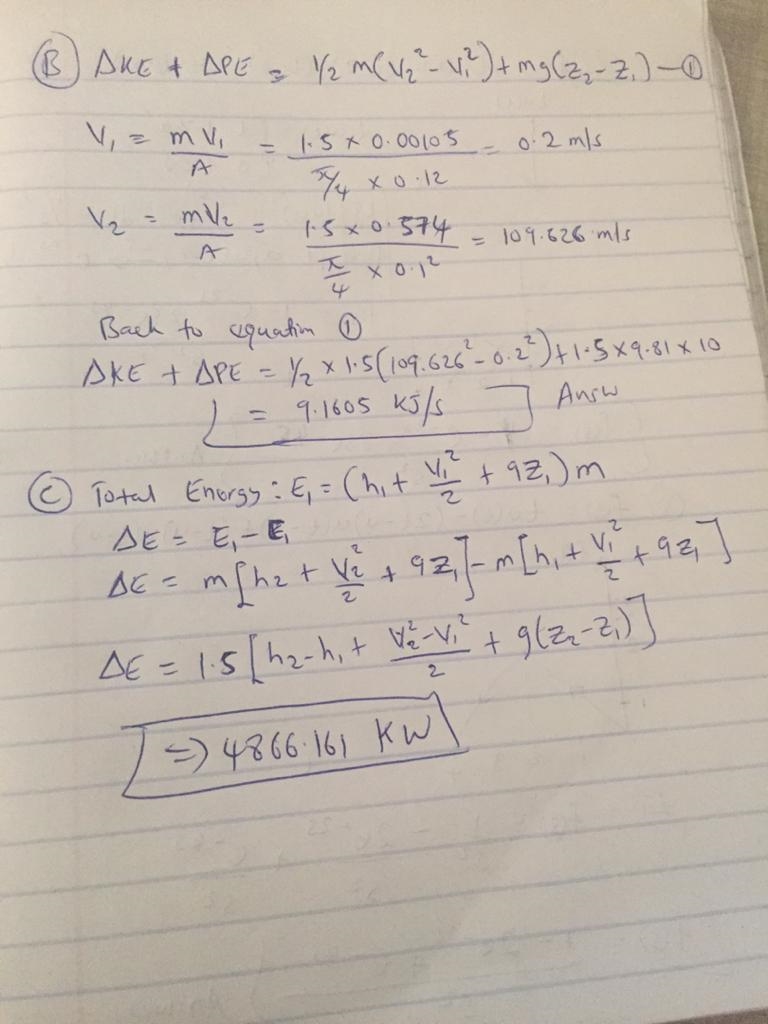 (B) ΔKE + ΔPE = 1/2 m(V₂² - V₁²) + mg(Z₂ - Z₁) — ①
V₁ = mV₁/A = 1.5 × 0.00105 / π/4 × 0.12 = 0.2 m/s
V₂ = mV₂/A = 1.5 × 0.574 / π/4 × 0.1² = 109.626 m/s
Back to equation ①
ΔKE + ΔPE = 1/2 × 1.5(109.626² - 0.2²) + 1.5 × 9.81 × 10
= 9.1605 KJ/s Answ
(C) Total Energy: E₁ = (h₁ + V₁²/2 + gZ₁) m
ΔE = E₁ - E₁
ΔE = m[h₂ + V₂²/2 + gZ₁] - m[h₁ + V₁²/2 + gZ₁]
ΔE = 1.5 [h₂ - h₁ + V₂² - V₁²/2 + g(Z₂ - Z₁)]
⇒ 4866.161 KW